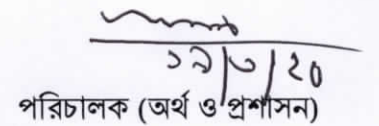 ১৯/৩/২০
পরিচালক (অর্থ ও প্রশাসন)